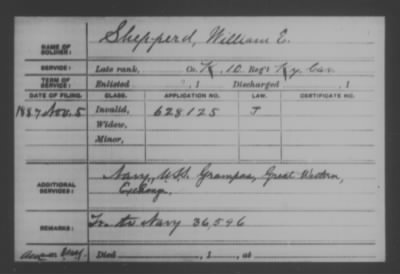 NAME OF SOLDIER: Shepperd, William E.
SERVICE: Late rank, Co. K, 10 Reg't Ky. Cav.
TERM OF SERVICE: Enlisted , 1 Discharged , 1
DATE OF FILING. CLASS. APPLICATION NO. LAW. CERTIFICATE NO.
1887 Nov. 5 Invalid, 628125 J
Widow,
Minor,
ADDITIONAL SERVICES: Navy, U.S.S. Grampus, Great Western,
Exchange.
REMARKS: In the Navy 36,546
Died , 1 , at